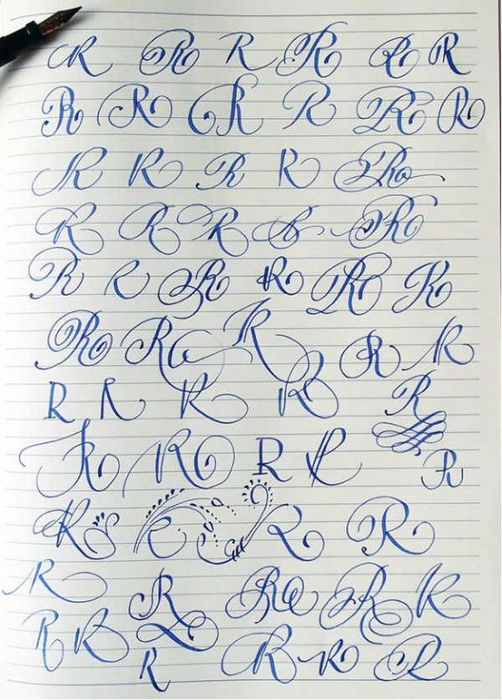 R R R R R R
R R R R R R
R R R R R
R R R R R
R R R R R R
R R R R R
R R R R R
R R R R R
R R R
R R R R R
R R R R R R